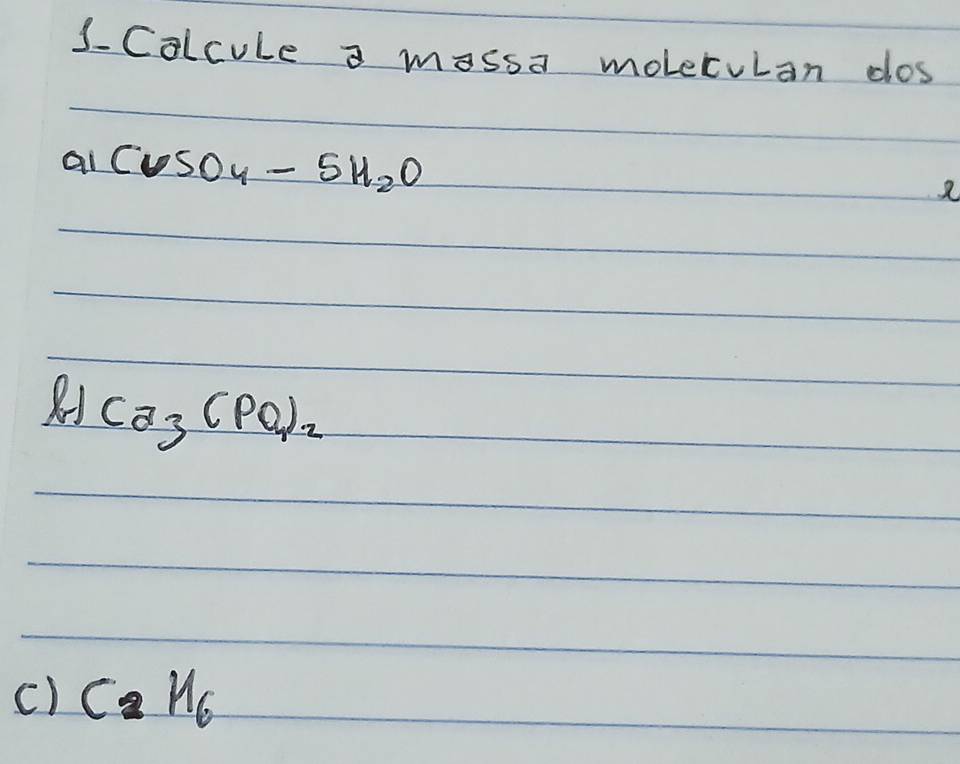 1-Calcule a massa molecular dos
a) CuSO₄ - 5H₂O
b) Ca₃(PO₄)₂
c) C₂H₆